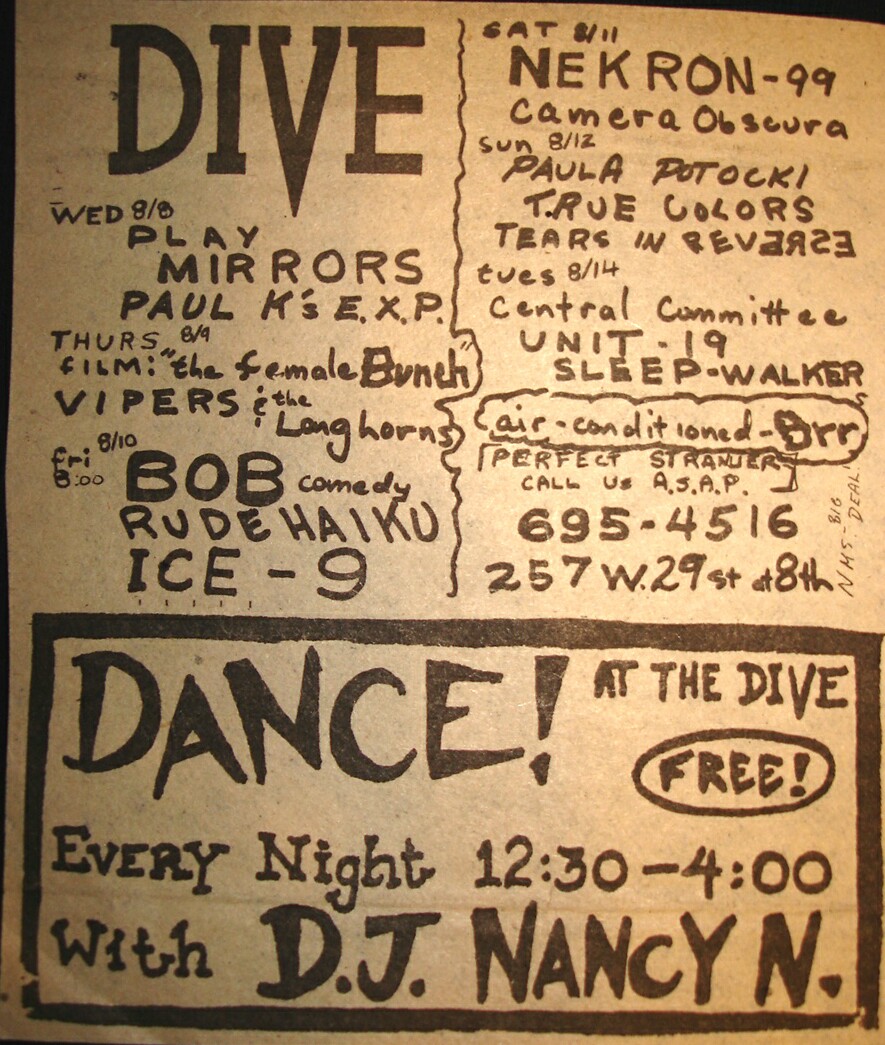 DIVE
WED 8/8
PLAY
MIRRORS
PAUL K's E.X.P.
THURS 8/9
FILM: "the female Bunch"
VIPERS & the
Longhorns
fri 8/10
8:00 BOB comedy
RUDE HAIKU
ICE - 9
SAT 8/11
NEKRON-99
Camera Obscura
Sun 8/12
PAULA POTOCKI
TRUE COLORS
TEARS IN REVERSE
tues 8/14
Central Committee
UNIT-19
SLEEP-WALKERS
air-conditioned-Brr
PERFECT STRANJERS
CALL US A.S.A.P.
695-4516
257 W. 29 st at 8th
8/6
DEAL!
DANCE! AT THE DIVE
FREE!
EVERY Night 12:30-4:00
With D.J. NANCY N.